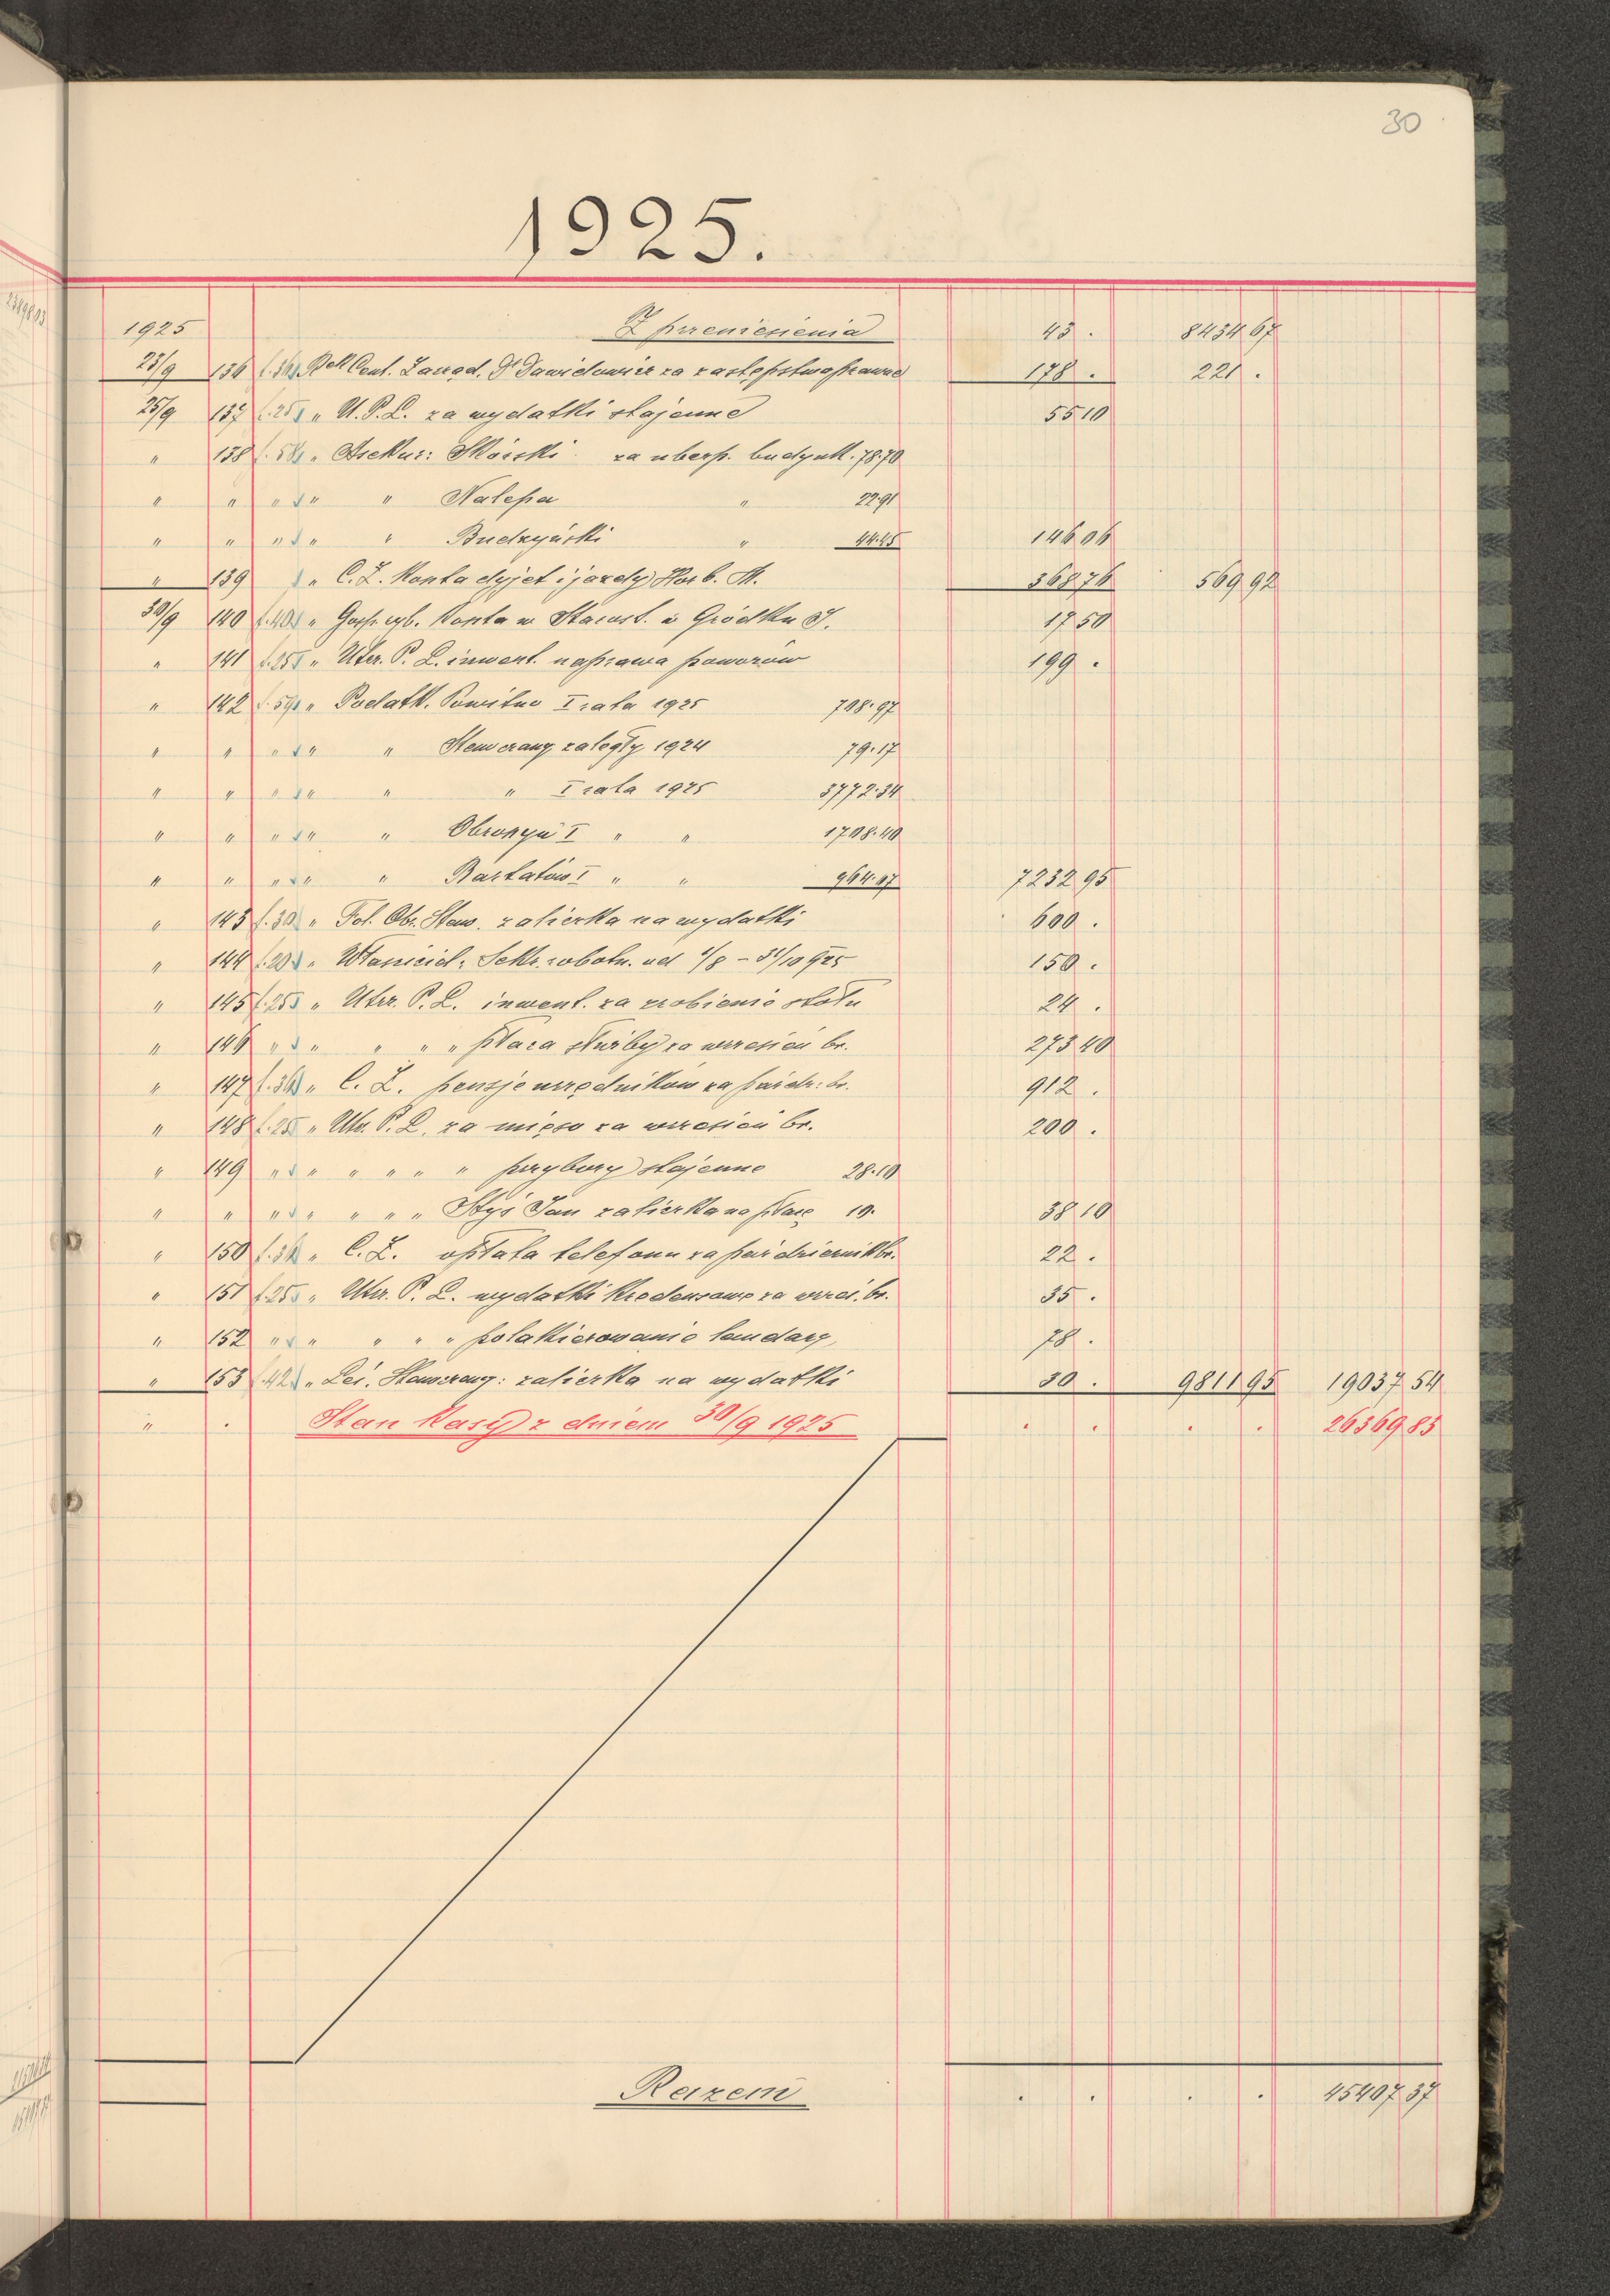 30
1925.
1925 Z przeniesienia 43 . 8434 67
23/9 136 f. 36 Rck Cent. Zarząd. Dr Dawidowicz za zastępstwo prawne 178 . 221 .
25/9 137 f. 25 " U. P. L. za wydatki stajenne 55 10
" 138 f. 58 " Asekur: Skórski za ubezp. budynk. 78.70
" " " " " Nalepa " 22.91
" " " " " Budzyński " 44.45 146 06
" 139 " C. Z. Konta dyjet i jazdy Horb. M. 368 76 569 92
30/9 140 f. 40 " Gosp. ryb. Konta w Starost. w Gródku J. 17 50
" 141 f. 25 " Utrz. P. L. inwent. naprawa powozów 199 .
" 142 f. 59 " Podatk. Powitno I rata 1925 708.97
" " " " " Stawczany zaległy 1924 79.17
" " " " " " I rata 1925 3772.34
" " " " " Obroszyn I " " 1708.40
" " " " " Bartatów I " " 964.07 7232 95
" 143 f. 30 " Fol. Obr. Staw. zaliczka na wydatki 600 .
" 144 f. 20 " Właściciel: Sekr. robotn. od 1/8 – 31/10 925 150 .
" 145 f. 25 " Utrz. P. L. inwent. za zrobienie stołu 24 .
" 146 " " " " " płaca służby za wrzesień br. 273 40
" 147 f. 36 " C. Z. pensje urzędników za paźdz: br. 912 .
" 148 f. 25 " Utr. P. L. za mięso za wrzesień br. 200 .
" 149 " " " " " " przybory stajenne 28.10
" " " " " " " Styś Jan zaliczka na płacę 10. 38 10
" 150 f. 36 " C. Z. opłata telefonu za październik br. 22 .
" 151 f. 25 " Utrz. P. L. wydatki kredensowe za wrześ. br. 35 .
" 152 " " " " " polakierowanie landary 78 .
" 153 f. 42 " Leś. Stawczany: zaliczka na wydatki 30 . 9811 95 19037 54
" . Stan Kasy z dniem 30/9 1925 . . . . 26369 83
Razem . . . . 45407 37